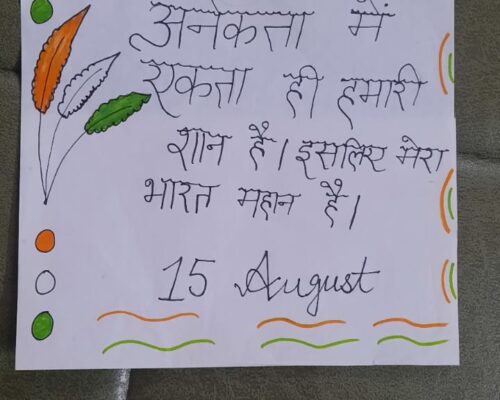 अनेकता में
एकता ही हमारी
शान है। इसलिए मेरा
भारत महान है।
15 August